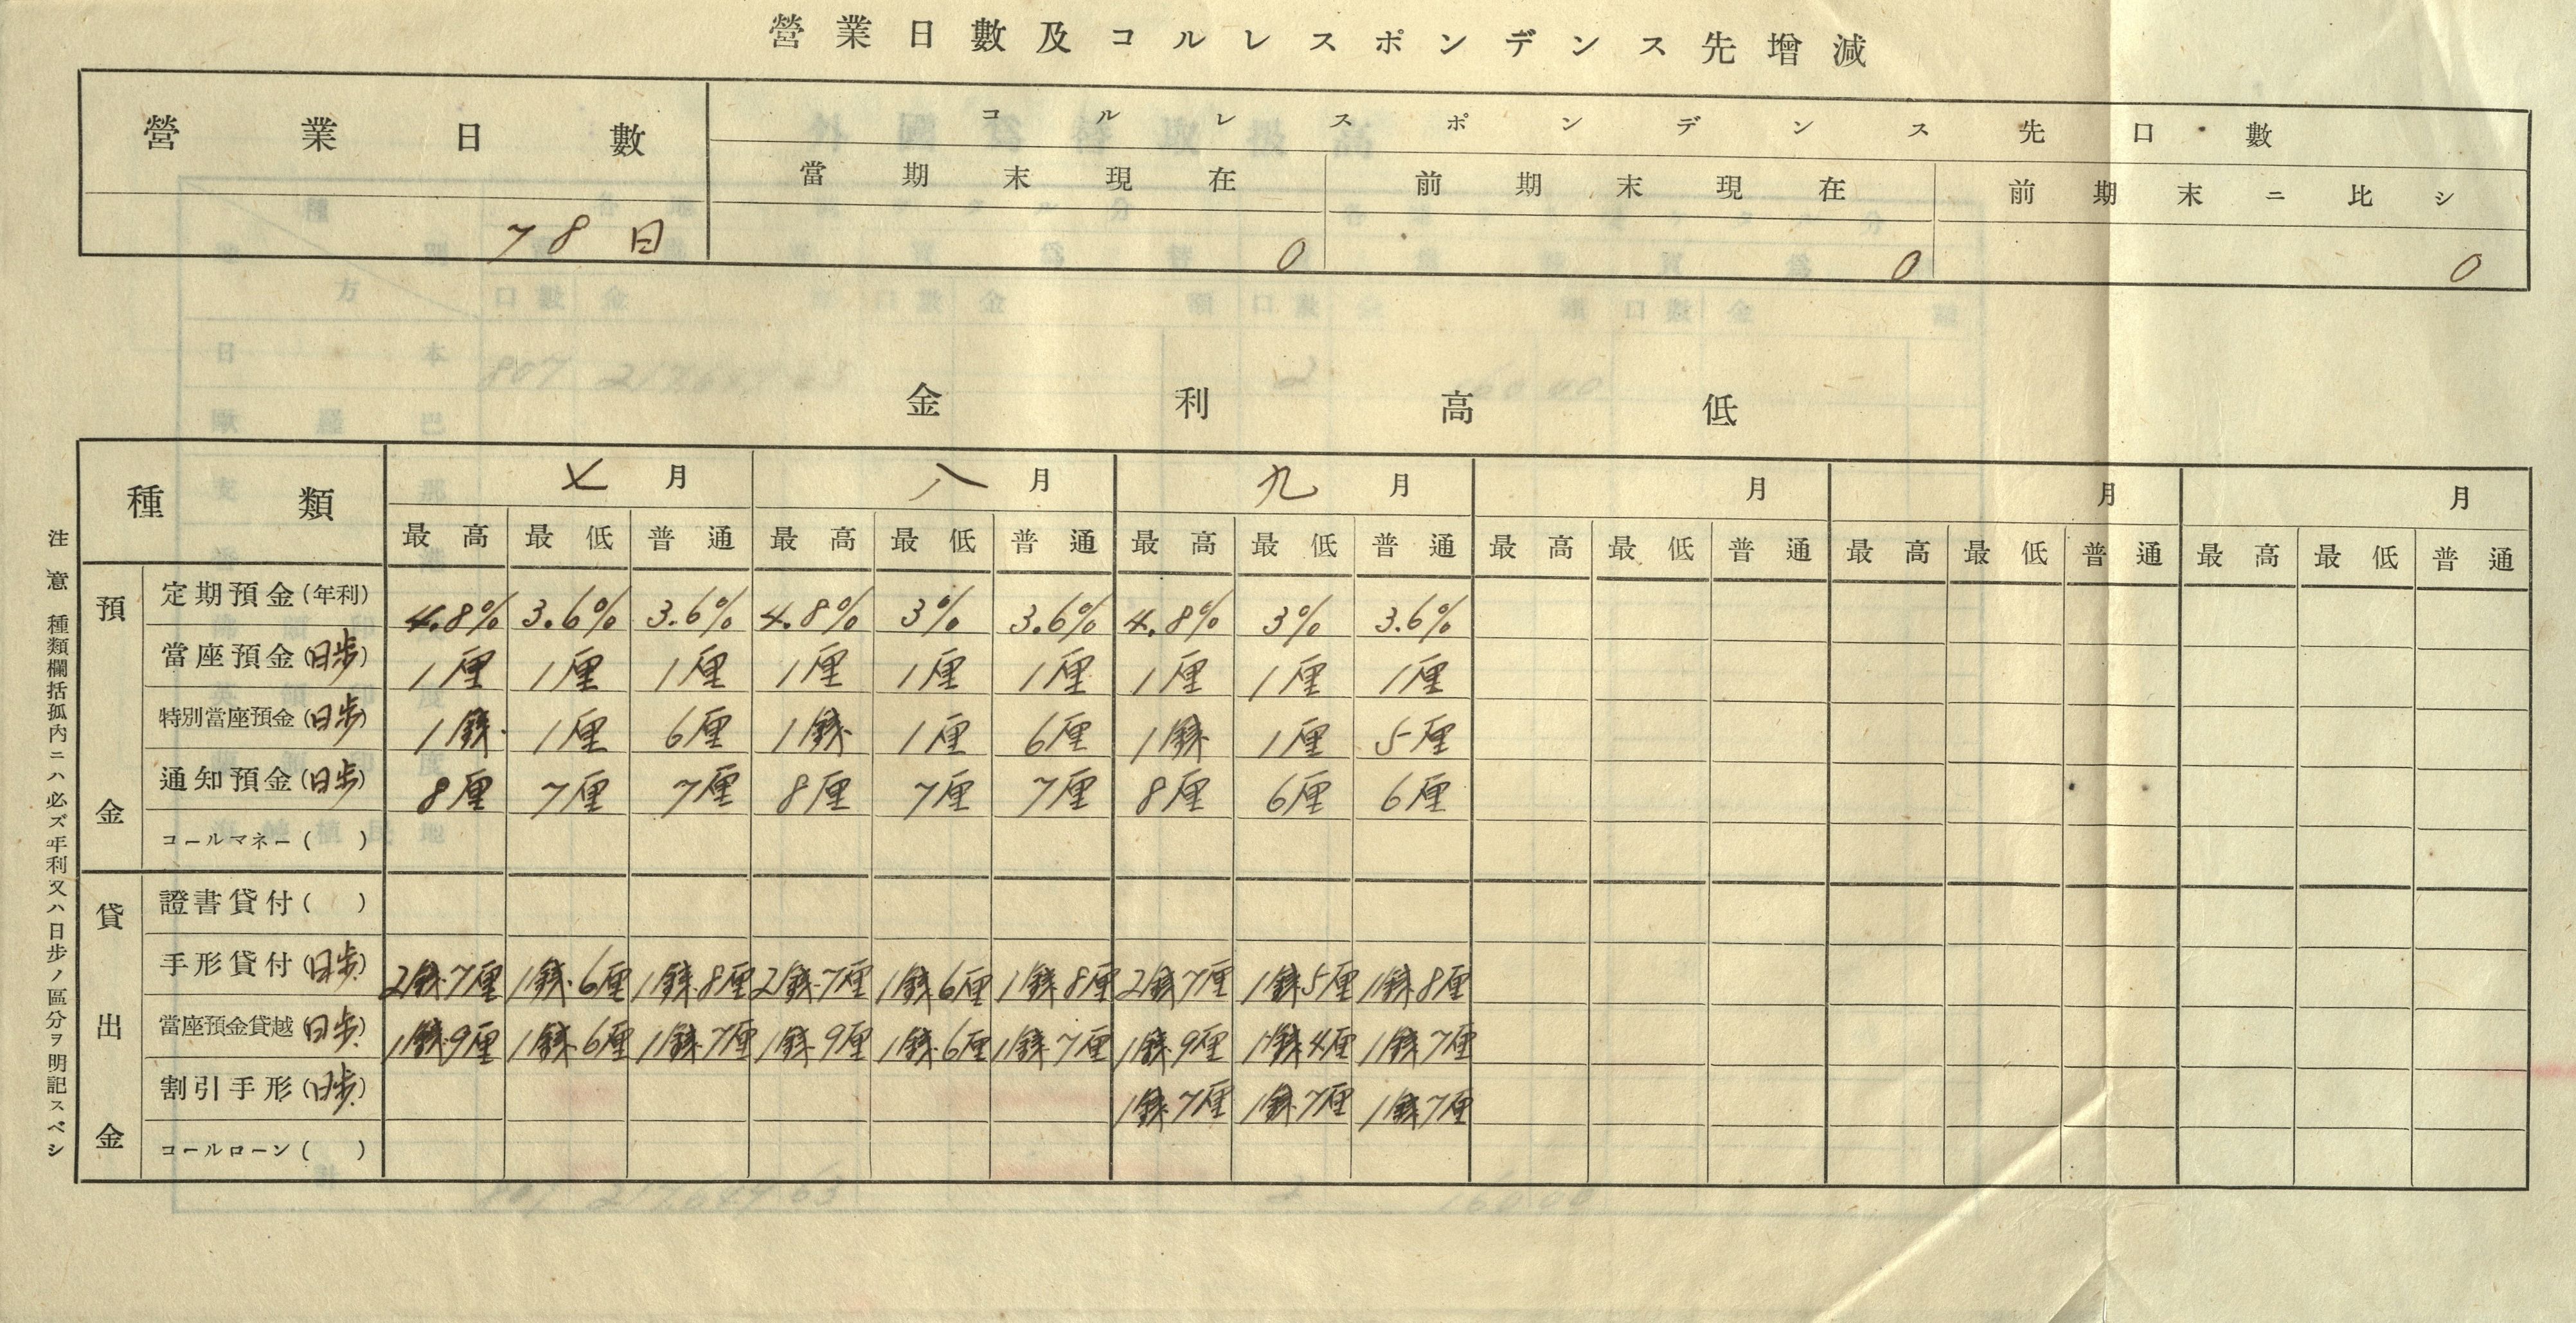 營業日數及コルレスポンデンス先增減
營業日數 コルレスポンデンス先口數
當期末現在 前期末現在 前期末ニ比シ
78日 0 0 0
金利高低
種類 七月 八月 九月 月 月 月
最高 最低 普通 最高 最低 普通 最高 最低 普通 最高 最低 普通 最高 最低 普通 最高 最低 普通
預金
定期預金(年利) 4.8% 3.6% 3.6% 4.8% 3% 3.6% 4.8% 3% 3.6%
當座預金(日歩) 1厘 1厘 1厘 1厘 1厘 1厘 1厘 1厘 1厘
特別當座預金(日歩) 1錢 1厘 6厘 1錢 1厘 6厘 1錢 1厘 5厘
通知預金(日歩) 8厘 7厘 7厘 8厘 7厘 7厘 8厘 6厘 6厘
コールマネー( )
貸出金
證書貸付( )
手形貸付(日歩) 2錢7厘 1錢6厘 1錢8厘 2錢7厘 1錢6厘 1錢8厘 2錢7厘 1錢5厘 1錢8厘
當座預金貸越(日歩) 1錢9厘 1錢6厘 1錢7厘 1錢9厘 1錢6厘 1錢7厘 1錢9厘 1錢4厘 1錢7厘
割引手形(日歩) 1錢7厘 1錢7厘 1錢7厘
コールローン( )
注意 種類欄括孤內ニハ必ズ年利又ハ日步ノ區分ヲ明記スベシ